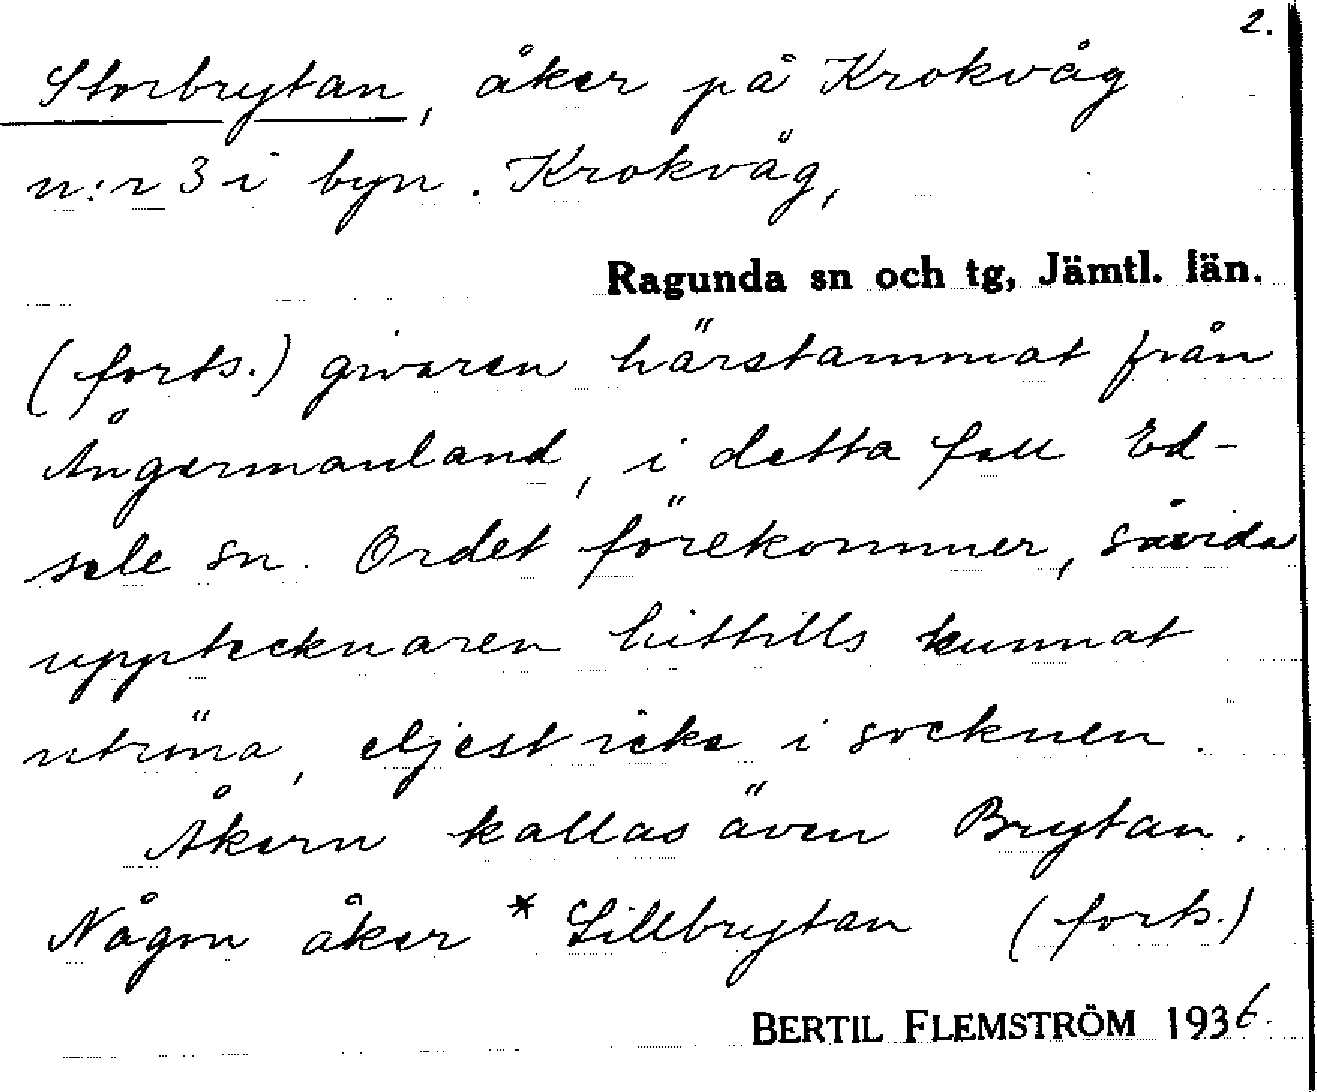 2.
Storbrytan, åker på Krokvåg
n:r 3 i byn. Krokvåg,
Ragunda sn och tg, Jämtl. län.
(forts.) givaren härstammat från
Ångermanland, i detta fall Ed-
sele sn. Ordet förekommer, såvida
upptecknaren hittills kunnat
utröna, eljest icke i socknen.
Åkern kallas även Brytan.
Någon åker * Lillbrytan (forts.)
BERTIL FLEMSTRÖM 1936.